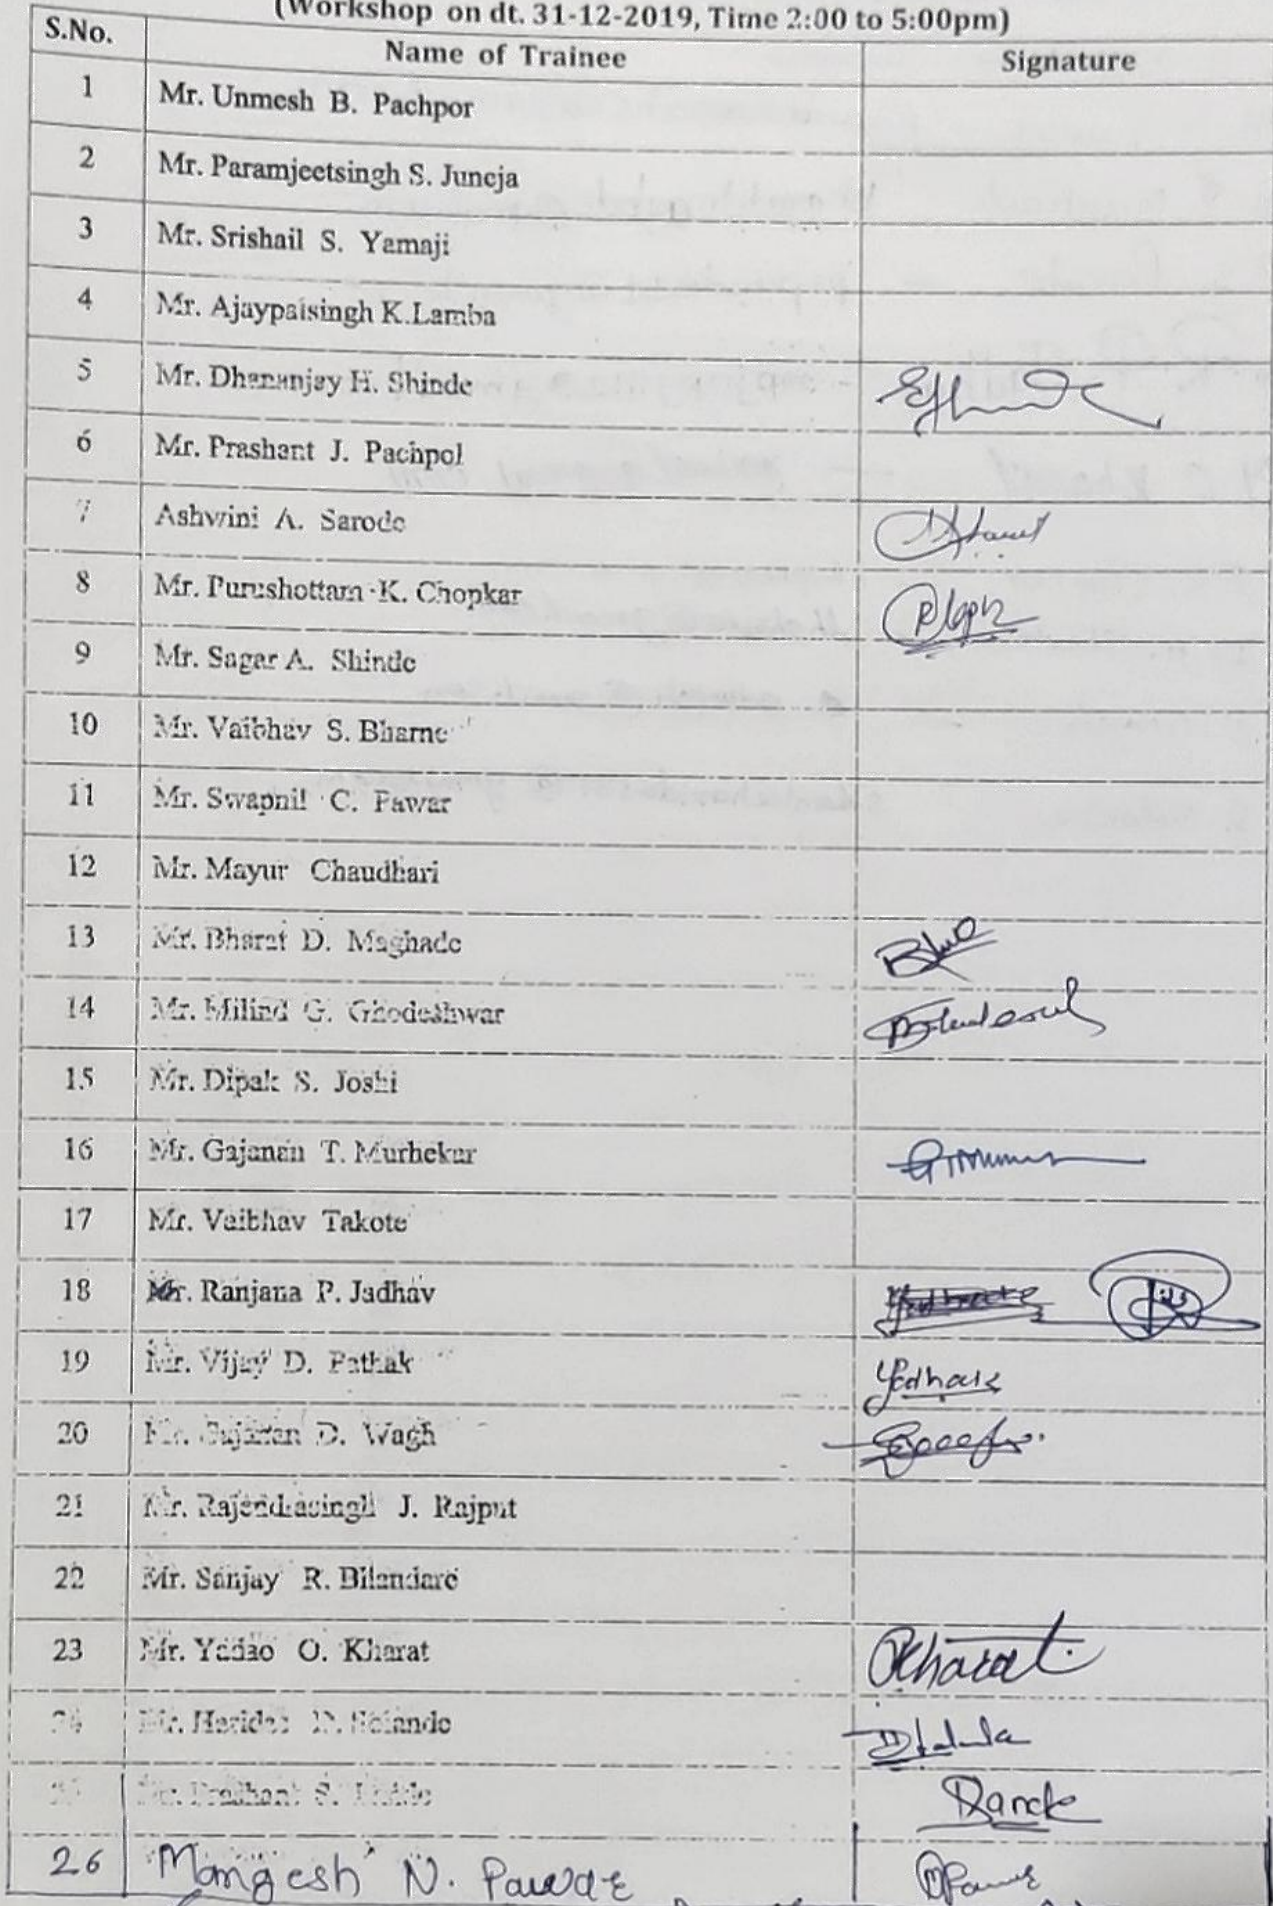 (Workshop on dt. 31-12-2019, Time 2:00 to 5:00pm)
S.No. Name of Trainee Signature
1 Mr. Unmesh B. Pachpor
2 Mr. Paramjeetsingh S. Juneja
3 Mr. Srishail S. Yamaji
4 Mr. Ajaypalsingh K.Lamba
5 Mr. Dhananjay H. Shinde
6 Mr. Prashant J. Pachpol
7 Ashwini A. Sarode
8 Mr. Purushottam K. Chopkar
9 Mr. Sagar A. Shinde
10 Mr. Vaibhav S. Bharne
11 Mr. Swapnil C. Pawar
12 Mr. Mayur Chaudhari
13 Mr. Bharat D. Maghade
14 Mr. Milind G. Ghodeshwar
15 Mr. Dipak S. Joshi
16 Mr. Gajanan T. Murhekar
17 Mr. Vaibhav Takote
18 Mr. Ranjana P. Jadhav
19 Mr. Vijay D. Pathak
20 Mr. Gajanan D. Wagh
21 Mr. Rajendrasingh J. Rajput
22 Mr. Sanjay R. Bilandare
23 Mr. Yadao O. Kharat Kharat
24 Mr. Haridas
25 Prashant S.
26 Mangesh N. Pawar